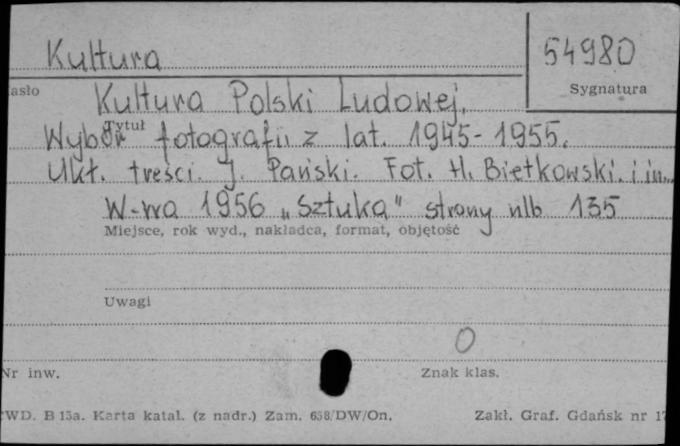 Kultura 54980
asło Sygnatura
Kultura Polski Ludowej.
Tytuł
Wybór fotografii z lat. 1945-1955.
Ukł. treści. J. Pański. Fot. H. Bietkowski. i in.
W-wa 1956 „Sztuka" strony nlb 135
Miejsce, rok wyd., nakładca, format, objętość
Uwagi
0
Nr inw. Znak klas.
WD. B 15a. Karta katal. (z nadr.) Zam. 658/DW/On. Zakł. Graf. Gdańsk nr 17